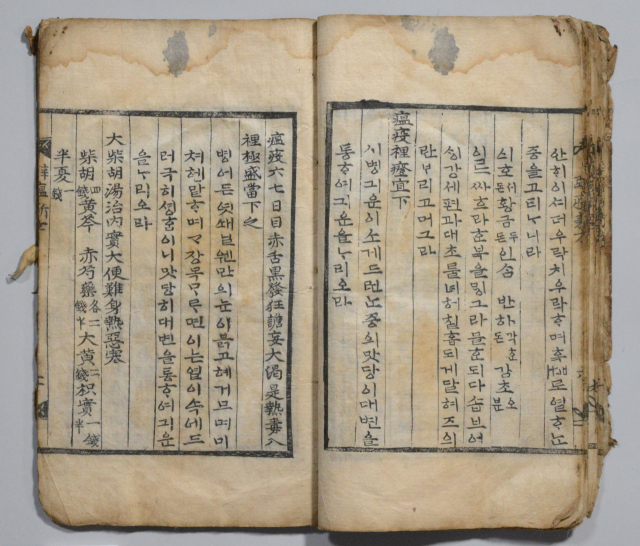 산히이셔더우락치우락ᄒᆞ며혹때로열ᄒᆞᄂᆞᆫ
증을고티ᄂᆞ니라
싀호서돈황금두돈인ᄉᆞᆷ 반하각ᄒᆞᆫ돈 감초오분
이ᄅᆞᆯ싸ᄒᆞ라ᄒᆞᆫ복을ᄆᆡᆼ그라믈ᄒᆞᆫ되다ᄉᆞᆸ브어
ᄉᆡᆼ강세편과대초둘녀허칠홉되게달혀즈의
란ᄇᆞ리고머그라
瘟疫裡證宜下
시병긔운이소게드런ᄂᆞᆫ증의맛당이대변을
통ᄒᆞ여긔운을ᄂᆞ리오라
瘟疫六七日目赤舌黑發狂譫妄大渴是熱毒入
裡極盛當下之
병어든엿쇄닐웬만의눈이븕고혜거므며미
쳐헷말ᄒᆞ며ᄀᆞ장목ᄆᆞᄅᆞ면이ᄂᆞᆫ열이속에드
러극히셩ᄒᆞ미니맛당히대변을통ᄒᆞ여긔운
을ᄂᆞ리오라
大柴胡湯治內實大便難身熱惡寒
柴胡四錢黃芩 赤芍藥各二錢半大黃二錢枳實一錢半
半夏一錢